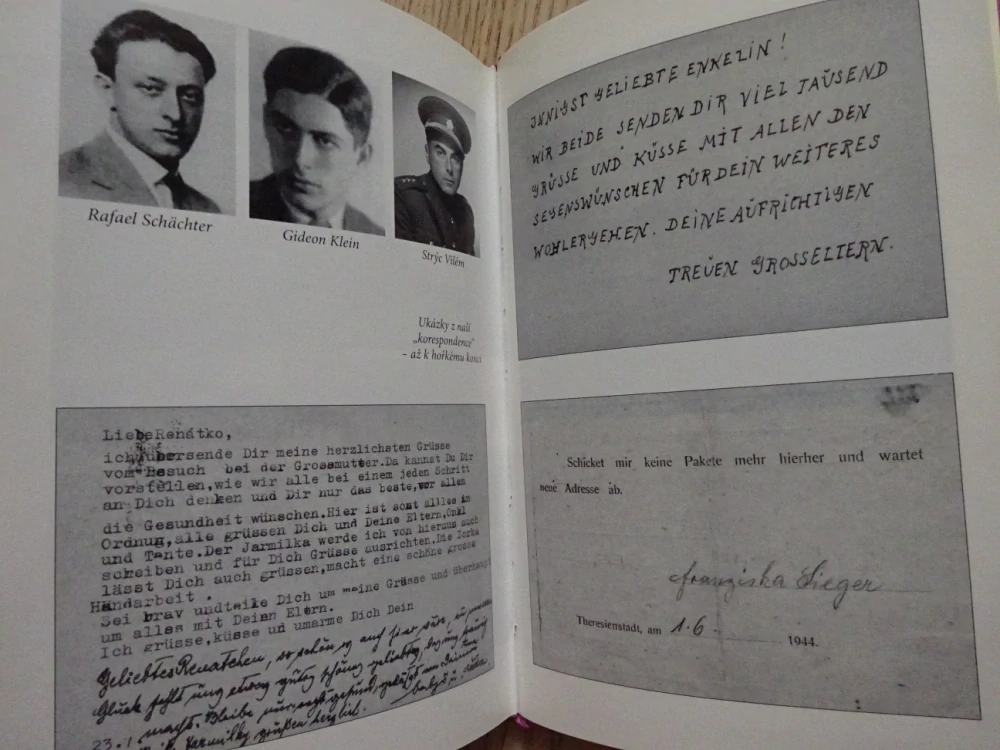 Rafael Schächter
Gideon Klein
Strýc Vilém
Ukázky z naší
„korespondence"
– až k hořkému konci
Liebe Renátko,
ich übersende Dir meine herzlichsten Grüsse
vom Besuch bei der Grossmutter.Da kannst Du Dir
vorstellen,wie wir alle bei einem jeden Schritt
an Dich denken und Dir nur das beste,vor allem
die Gesundheit wünschen.Hier ist sonst allles in
Ordnug,alle grüssen Dich und Deine Eltern,Onkl
und Tante.Der Jarmilka werde ich von hieraus auch
schreiben und für Dich Grüsse ausrichten.Die Zorka
lässt Dich auch grüssen,macht eine schöne grosse
Handarbeit .
Sei brav undteile Dich um meine Grüsse und überhaupt
um alles mit Deinen Eltern.
Ich grüsse,küsse un umarme Dich Dein
Geliebtes Renatchen, so schön es auch hier
Glück fehlt
macht. Bleibe nur recht gesund,
23.1 Jarmilky grüßen herzlich.
INNIGST GELIEBTE ENKELIN !
WIR BEIDE SENDEN DIR VIEL TAUSEND
GRÜSSE UND KÜSSE MIT ALLEN DEN
SEGENSWÜNSCHEN FÜR DEIN WEITERES
WOHLERGEHEN. DEINE AUFRICHTIGEN
TREUEN GROSSELTERN.
Schicket mir keine Pakete mehr hierher und wartet
neue Adresse ab.
Franziska Sieger
Theresienstadt, am 1.6. 1944.